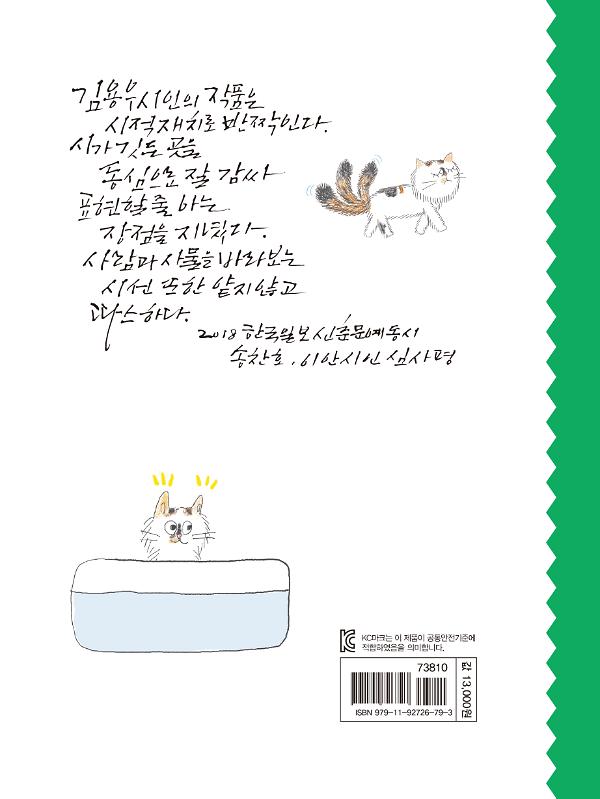 김용우시인의 작품은
시적재치로 반짝인다.
시가 깃든 곳을
동심으로 잘 감싸
표현할 줄 아는
장점을 지녔다.
사람과 사물을 바라보는
시선 또한 얕지않고
따스하다.
2018 한국일보신춘문예동시
송찬호, 이안시인 심사평
KC마크는 이 제품이 공통안전기준에
적합하였음을 의미합니다.
73810
ISBN 979-11-92726-79-3
값 13,000원